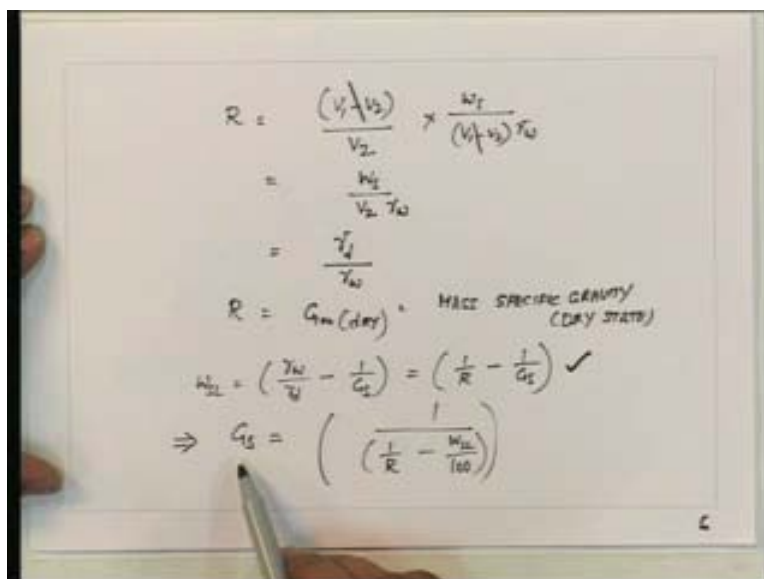 R = (V₁ - V₂) / V₂ × Ws / (V₁ - V₂) γw
= Ws / V₂ γw
= γd / γw
R = Gm (dry) = MASS SPECIFIC GRAVITY
(DRY STATE)
wSL = (γw / γd - 1 / Gs) = (1 / R - 1 / Gs) ✓
⇒ Gs = (1 / (1 / R - wSL / 100))